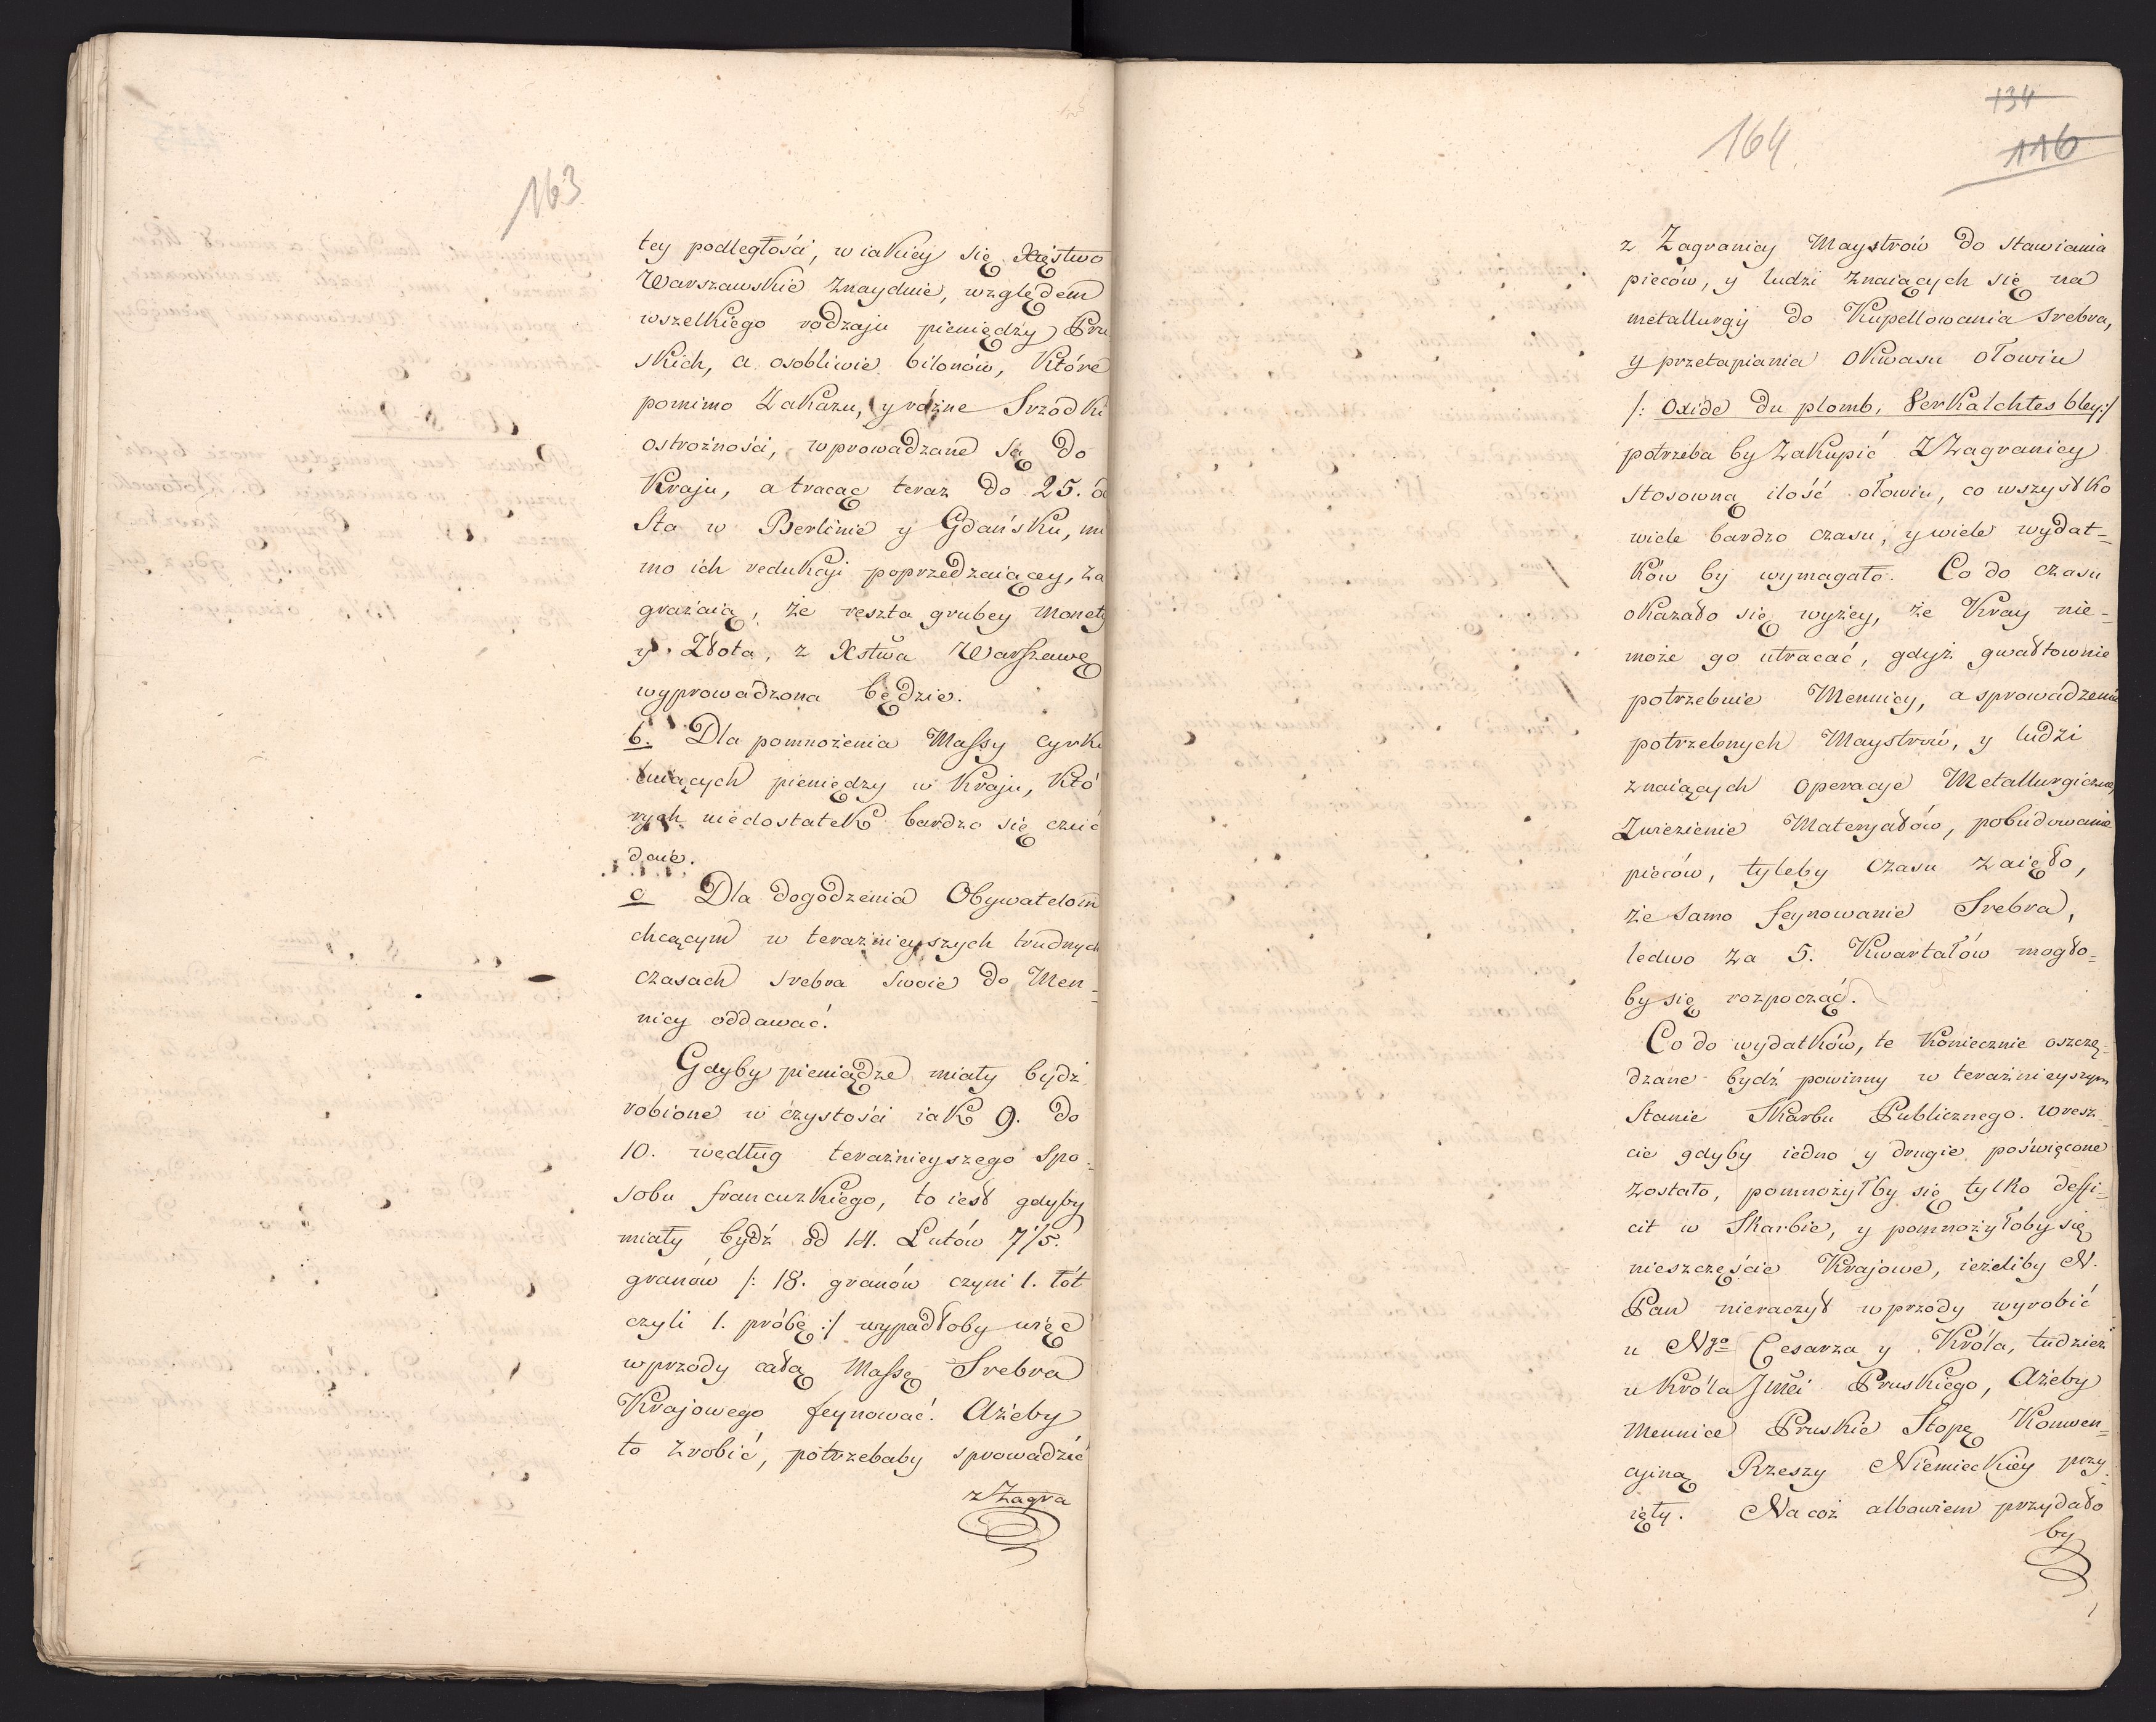 163
tey podległości, w iakiey się Xięstwo
Warszawskie znayduie, względem
wszelkiego rodzaju pieniędzy Pru
skich, a osobliwie bilonów, które
pomimo Zakazu, y różne Srzodki
ostrożności, wprowadzane są do
Kraju, a tracąc teraz do 25. o
sta w Berlinie y Gdańsku, mi
mo ich redukcji poprzedzaiącey, za
grażaią, że reszta grubey Monety
y Złota, z Xstwa Warszawę
wyprowadzona będzie.
b. Dla pomnożenia Massy cyrku
luiących pieniędzy w Kraju, któ
rych niedostatek bardzo się czuć
daie.
c Dla dogodzenia Obywatelom
chcącym w teraźnieyszych trudnych
czasach srebra swoie do Men=
nicy oddawać.
Gdyby pieniądze miały bydź
robione w czystości iak 9. do
10. według teraźnieyszego spo=
sobu francuzkiego, to iest gdyby
miały bydź od 14. Lutów 7 1/5.
granów /: 18. granów czyni 1. łót
czyli 1. próbę :/ wypadłoby więc
wprzody całą Massę Srebra
Krajowego feynować. Ażeby
to zrobić, potrzebaby sprowadzić
z Zagra
134
164
116
z Zagranicy Maystrów do stawiania
pieców, y ludzi znaiących się na
metallurgij do Kupellowania srebra,
y przetapiania Okwasu ołowiu
/: Oxide du plomb, Verkalchtes bley :/
potrzeba by Zakupić z Zagranicy
stosowną ilość ołowiu, co wszystko
wiele bardzo czasu, y wiele wydat=
ków by wymagało. Co do czasu
okazało się wyżey, że Kray nie=
może go utracać, gdyż gwałtownie
potrzebuie Mennicy, a sprowadzenie
potrzebnych Maystrów, y ludzi
znaiących Operacye Metallurgiczne,
Zwiezienie Materyałów, pobudowanie
pieców, tyleby czasu zaięło,
że samo feynowanie Srebra,
ledwo za 5. Kwartałów mogło=
by się rozpocząć.
Co do wydatków, te koniecznie oszczę=
dzane bydź powinny w teraźnieyszym
Stanie Skarbu Publicznego. Wresz=
cie gdyby iedno y drugie poświęcone
zostało, pomnożyłby się tylko deffi=
cit w Skarbie, y pomnożyłoby się
nieszczęście Krajowe, ieżeliby N.
Pan nieraczył wprzody wyrobić
u Ngo Cesarza y Króla, tudzież
u Króla Jmci Pruskiego, Ażeby
Mennice Pruskie Stopę Konwen=
cyiną Rzeszy Niemieckiey przy
ięły. Na cóż albowiem przydało
by